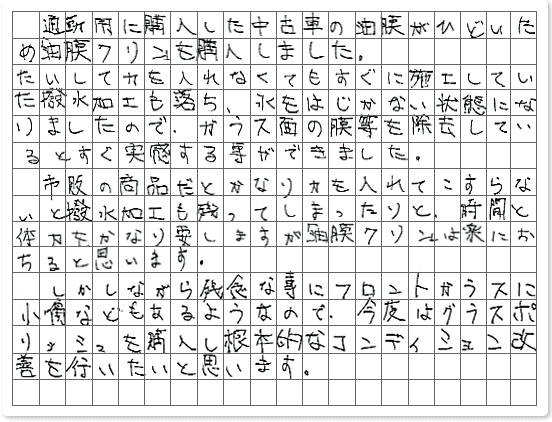 通勤用に購入した中古車の油膜がひどいた
め油膜クリンを購入しました。
たいして力を入れなくてもすぐに施工してい
た撥水加工も落ち、水をはじかない状態にな
りましたので、ガラス面の膜等を除去してい
るとすぐ実感する事ができました。
市販の商品だとかなり力を入れてこすらな
いと撥水加工も残ってしまったりと、時間と
体力をかなり要しますが油膜クリンは楽にお
ちると思います。
しかしながら残念な事にフロントガラスに
小傷などもあるようなので、今度はグラスポ
リッシュを購入し根本的なコンディション改
善を行いたいと思います。